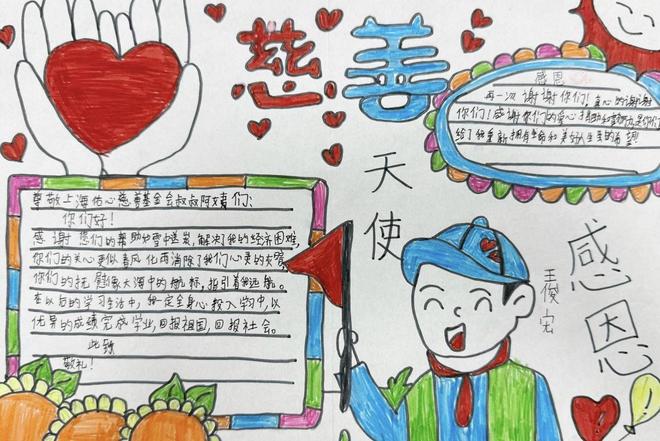 慈善
天使
感恩
王俊宏
尊敬上海佑心慈善基金会叔叔阿姨们:
你们好!
感谢您们的帮助如雪中送炭,解决了我的经济困难,
你们的关心更似春风化雨消除了我们心灵的灾害
你们的抚慰像大海中的航标,指引着我远航。
在以后的学习生活中,我一定全身心投入学习中,以
优异的成绩完成学业,回报祖国,回报社会。
此致
敬礼!
感恩
再一次谢谢你们!真心的谢谢
你们!感谢你们的爱心
给了我重新拥有生命和美好人生的希望!